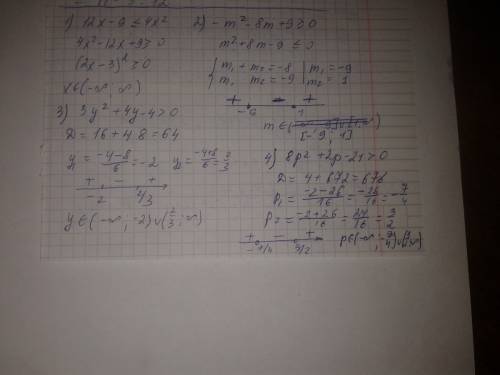 1) 12x - 9 ≤ 4x²
4x² - 12x + 9 ≥ 0
(2x - 3)² ≥ 0
x ∈ (-∞; ∞)
2) -m² - 8m + 9 ≥ 0
m² + 8m - 9 ≤ 0
{ m₁ + m₂ = -8 | m₁ = -9
m₁ m₂ = -9 | m₂ = 1
+ - +
-9 1
m ∈ [-9; 1]
3) 3y² + 4y - 4 > 0
D = 16 + 48 = 64
y₁ = (-4-8)/6 = -2 y₂ = (-4+8)/6 = 2/3
+ - +
-2 2/3
y ∈ (-∞; -2) ∪ (2/3; ∞)
4) 8p² + 2p - 21 > 0
D = 4 + 672 = 676
p₁ = (-2-26)/16 = -28/16 = -7/4
p₂ = (-2+26)/16 = 24/16 = 3/2
+ - +
-7/4 3/2